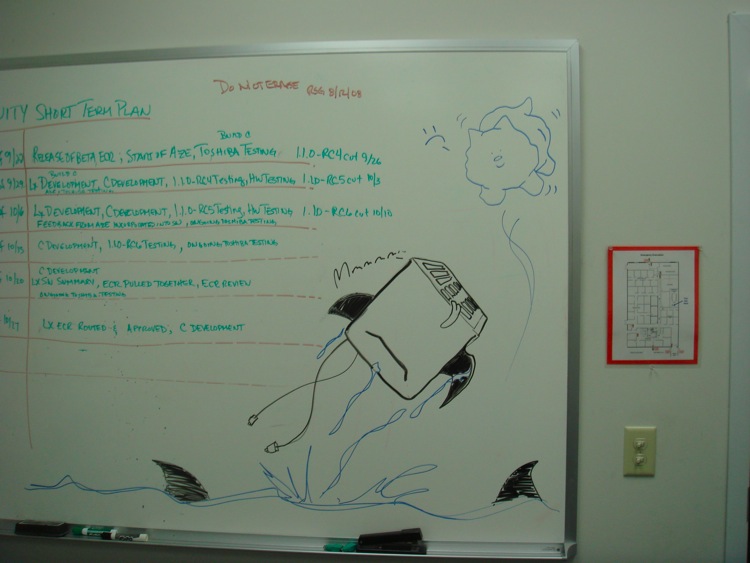 DO NOT ERASE RSG 8/12/08
SHORT TERM PLAN
BUILD C
9/22 RELEASE OF BETA ECR; START OF AZE, TOSHIBA TESTING 1.1.0-RC4 CUT 9/26
BUILD C
9/29 Lx DEVELOPMENT, C DEVELOPMENT, 1.1.0-RC4 TESTING, HW TESTING 1.1.0-RC5 CUT 10/3
10/6 Lx DEVELOPMENT, C DEVELOPMENT, 1.1.0-RC5 TESTING, HW TESTING 1.1.0-RC6 CUT 10/10
FEEDBACK FROM AZE INCORPORATED INTO SW, ONGOING TOSHIBA TESTING
C DEVELOPMENT, 1.1.0-RC6 TESTING, ONGOING TOSHIBA TESTING
C DEVELOPMENT
10/20 LX SW SUMMARY, ECR PULLED TOGETHER, ECR REVIEW
ONGOING TOSHIBA TESTING
LX ECR ROUTED & APPROVED, C DEVELOPMENT